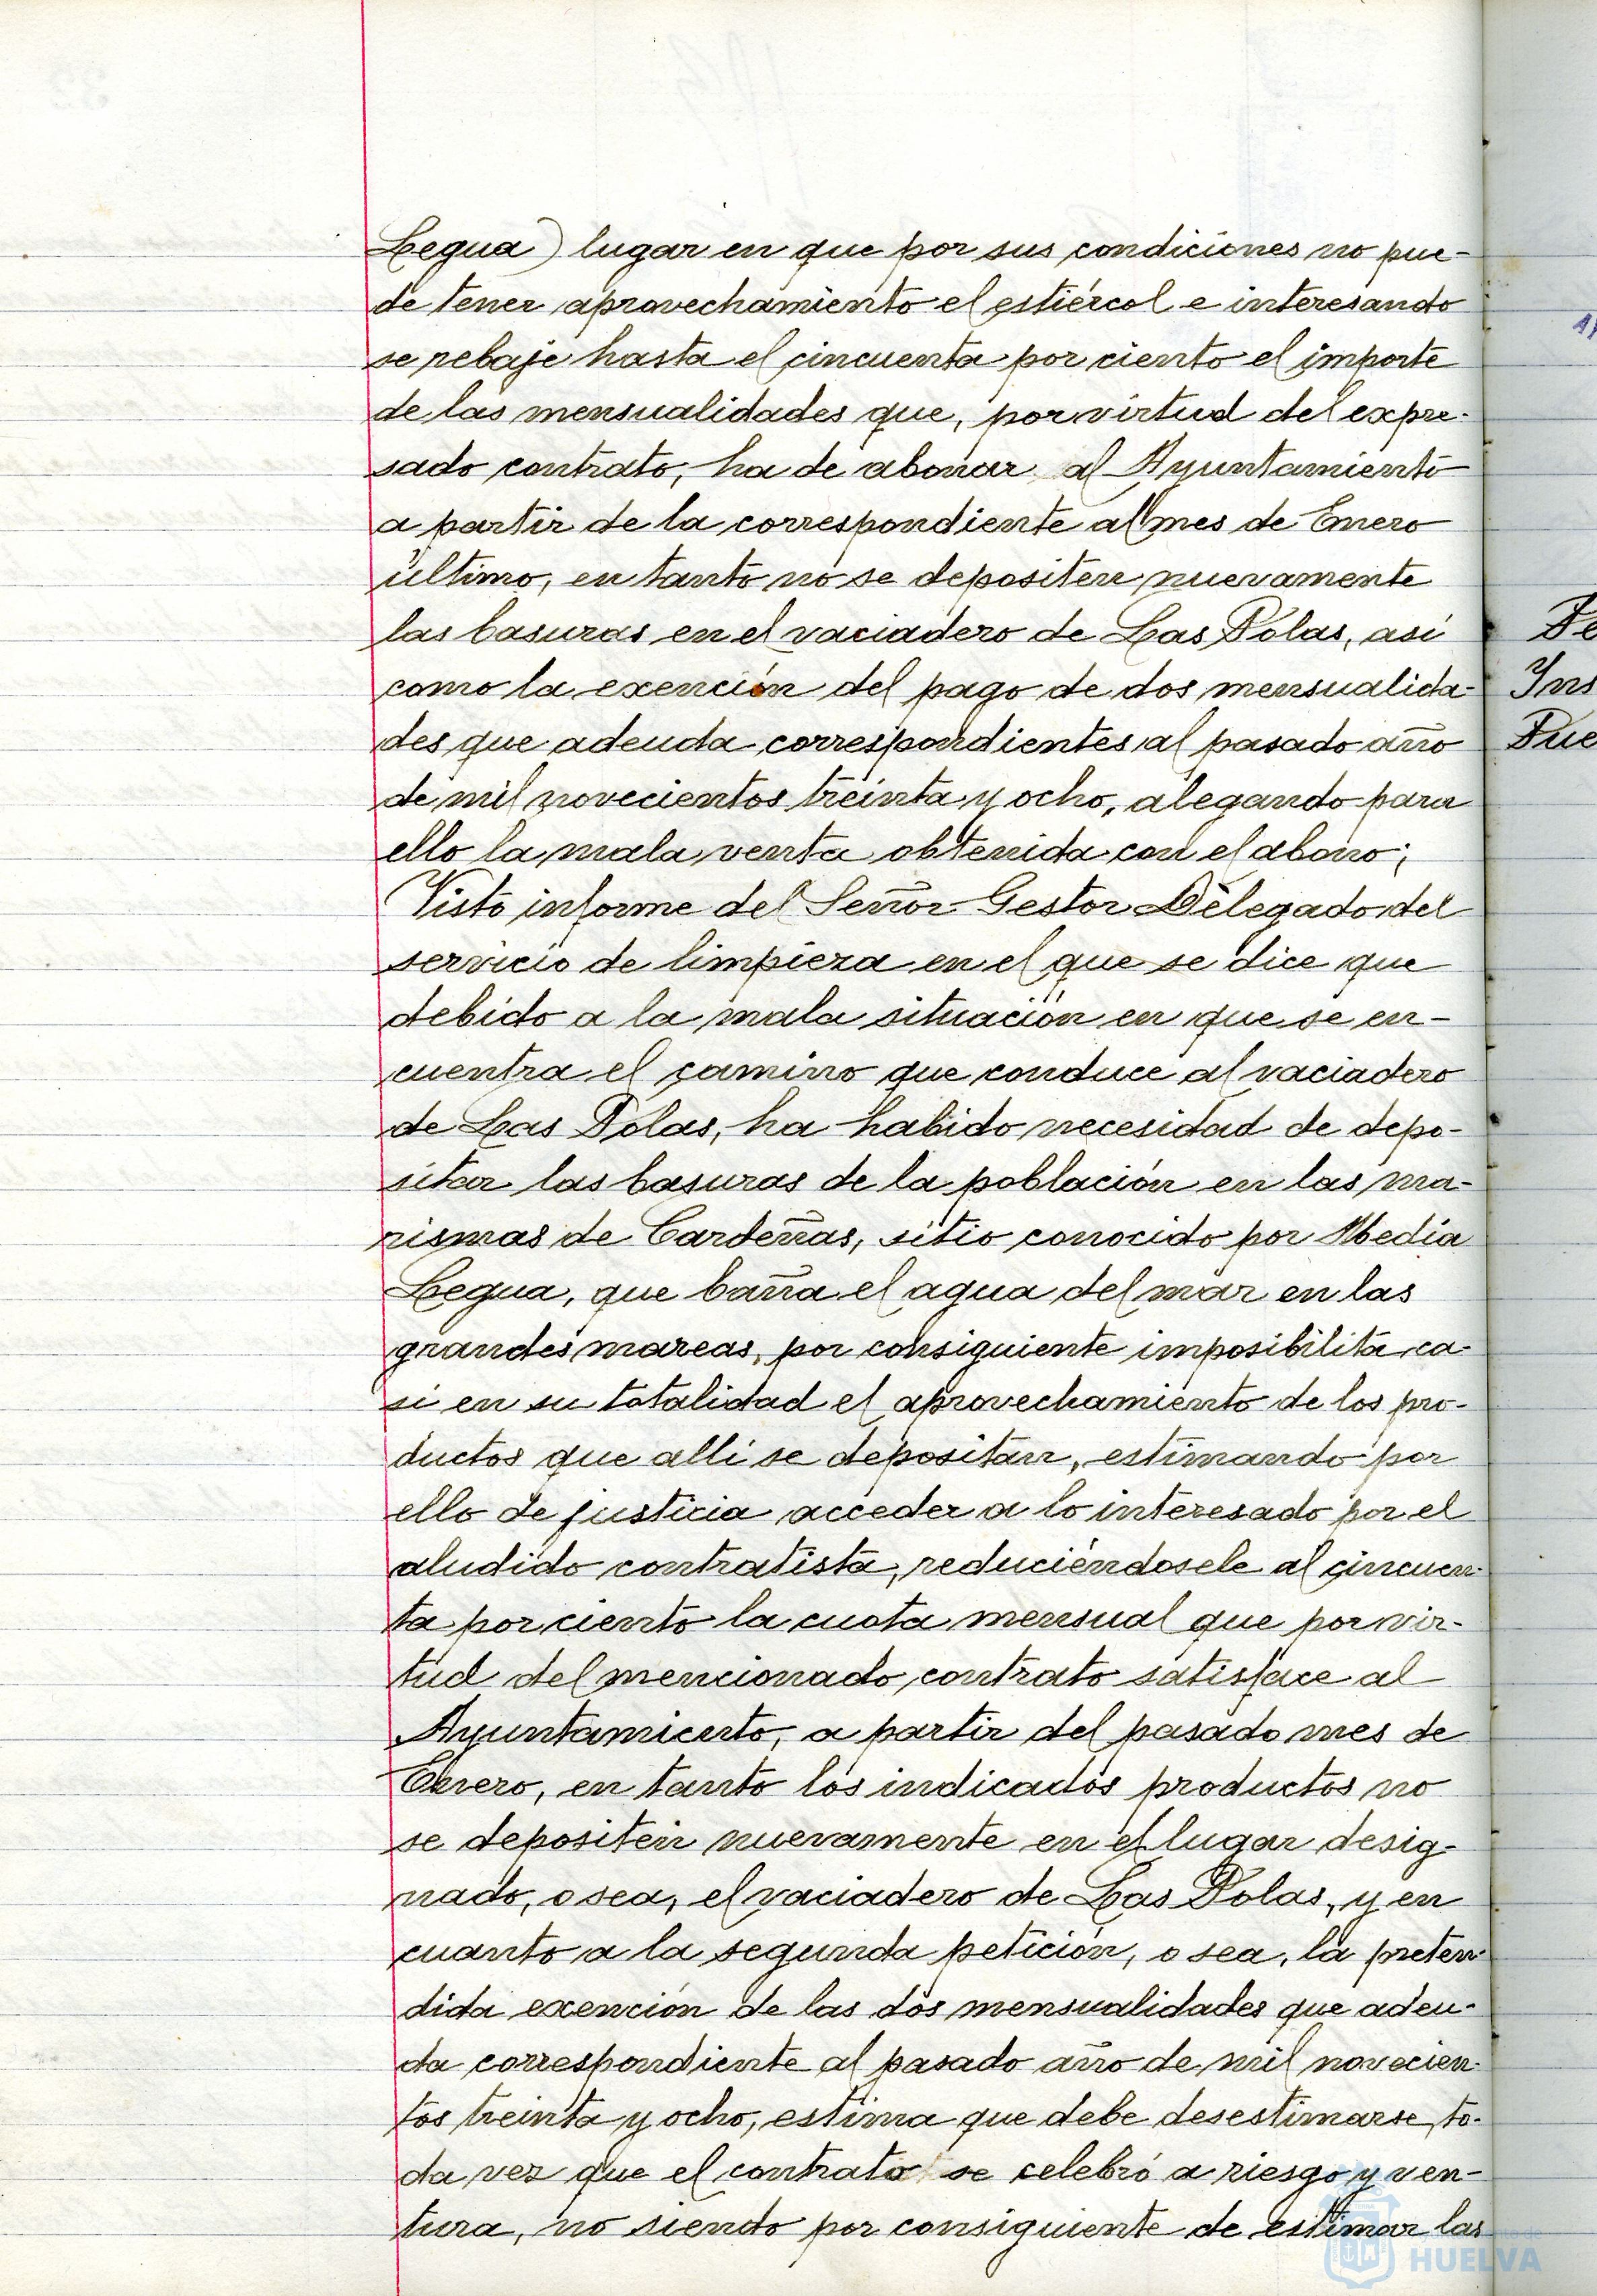 Legua) lugar en que por sus condiciones no pue-
de tener aprovechamiento el estiércol e interesando
se rebaje hasta el cincuenta por ciento el importe
de las mensualidades que, por virtud del expre-
sado contrato, ha de abonar al Ayuntamiento
a partir de la correspondiente al mes de Enero
último, en tanto no se depositen nuevamente
las basuras en el vaciadero de Las Polas, así
como la exención del pago de dos mensualida-
des que adeuda correspondientes al pasado año
de mil novecientos treinta y ocho, alegando para
ello la mala venta obtenida con el abono;
Visto informe del Señor Gestor Delegado del
servicio de limpieza en el que se dice que
debido a la mala situación en que se en-
cuentra el camino que conduce al vaciadero
de Las Polas, ha habido necesidad de depo-
sitar las basuras de la población en las ma-
rismas de Cardeñas, sitio conocido por Media
Legua, que baña el agua del mar en las
grandes mareas, por consiguiente imposibilita ca-
si en su totalidad el aprovechamiento de los pro-
ductos que allí se depositan, estimando por
ello de justicia acceder a lo interesado por el
aludido contratista, reduciéndosele al cincuen-
ta por ciento la cuota mensual que por vir-
tud del mencionado contrato satisface al
Ayuntamiento, a partir del pasado mes de
Enero, en tanto los indicados productos no
se depositen nuevamente en el lugar desig-
nado, o sea, el vaciadero de Las Polas, y en
cuanto a la segunda petición, o sea, la preten-
dida exención de las dos mensualidades que adeu-
da correspondiente al pasado año de mil novecien-
tos treinta y ocho, estima que debe desestimarse, to-
da vez que el contrato se celebró a riesgo y ven-
tura, no siendo por consiguiente de estimar las
HUELVA